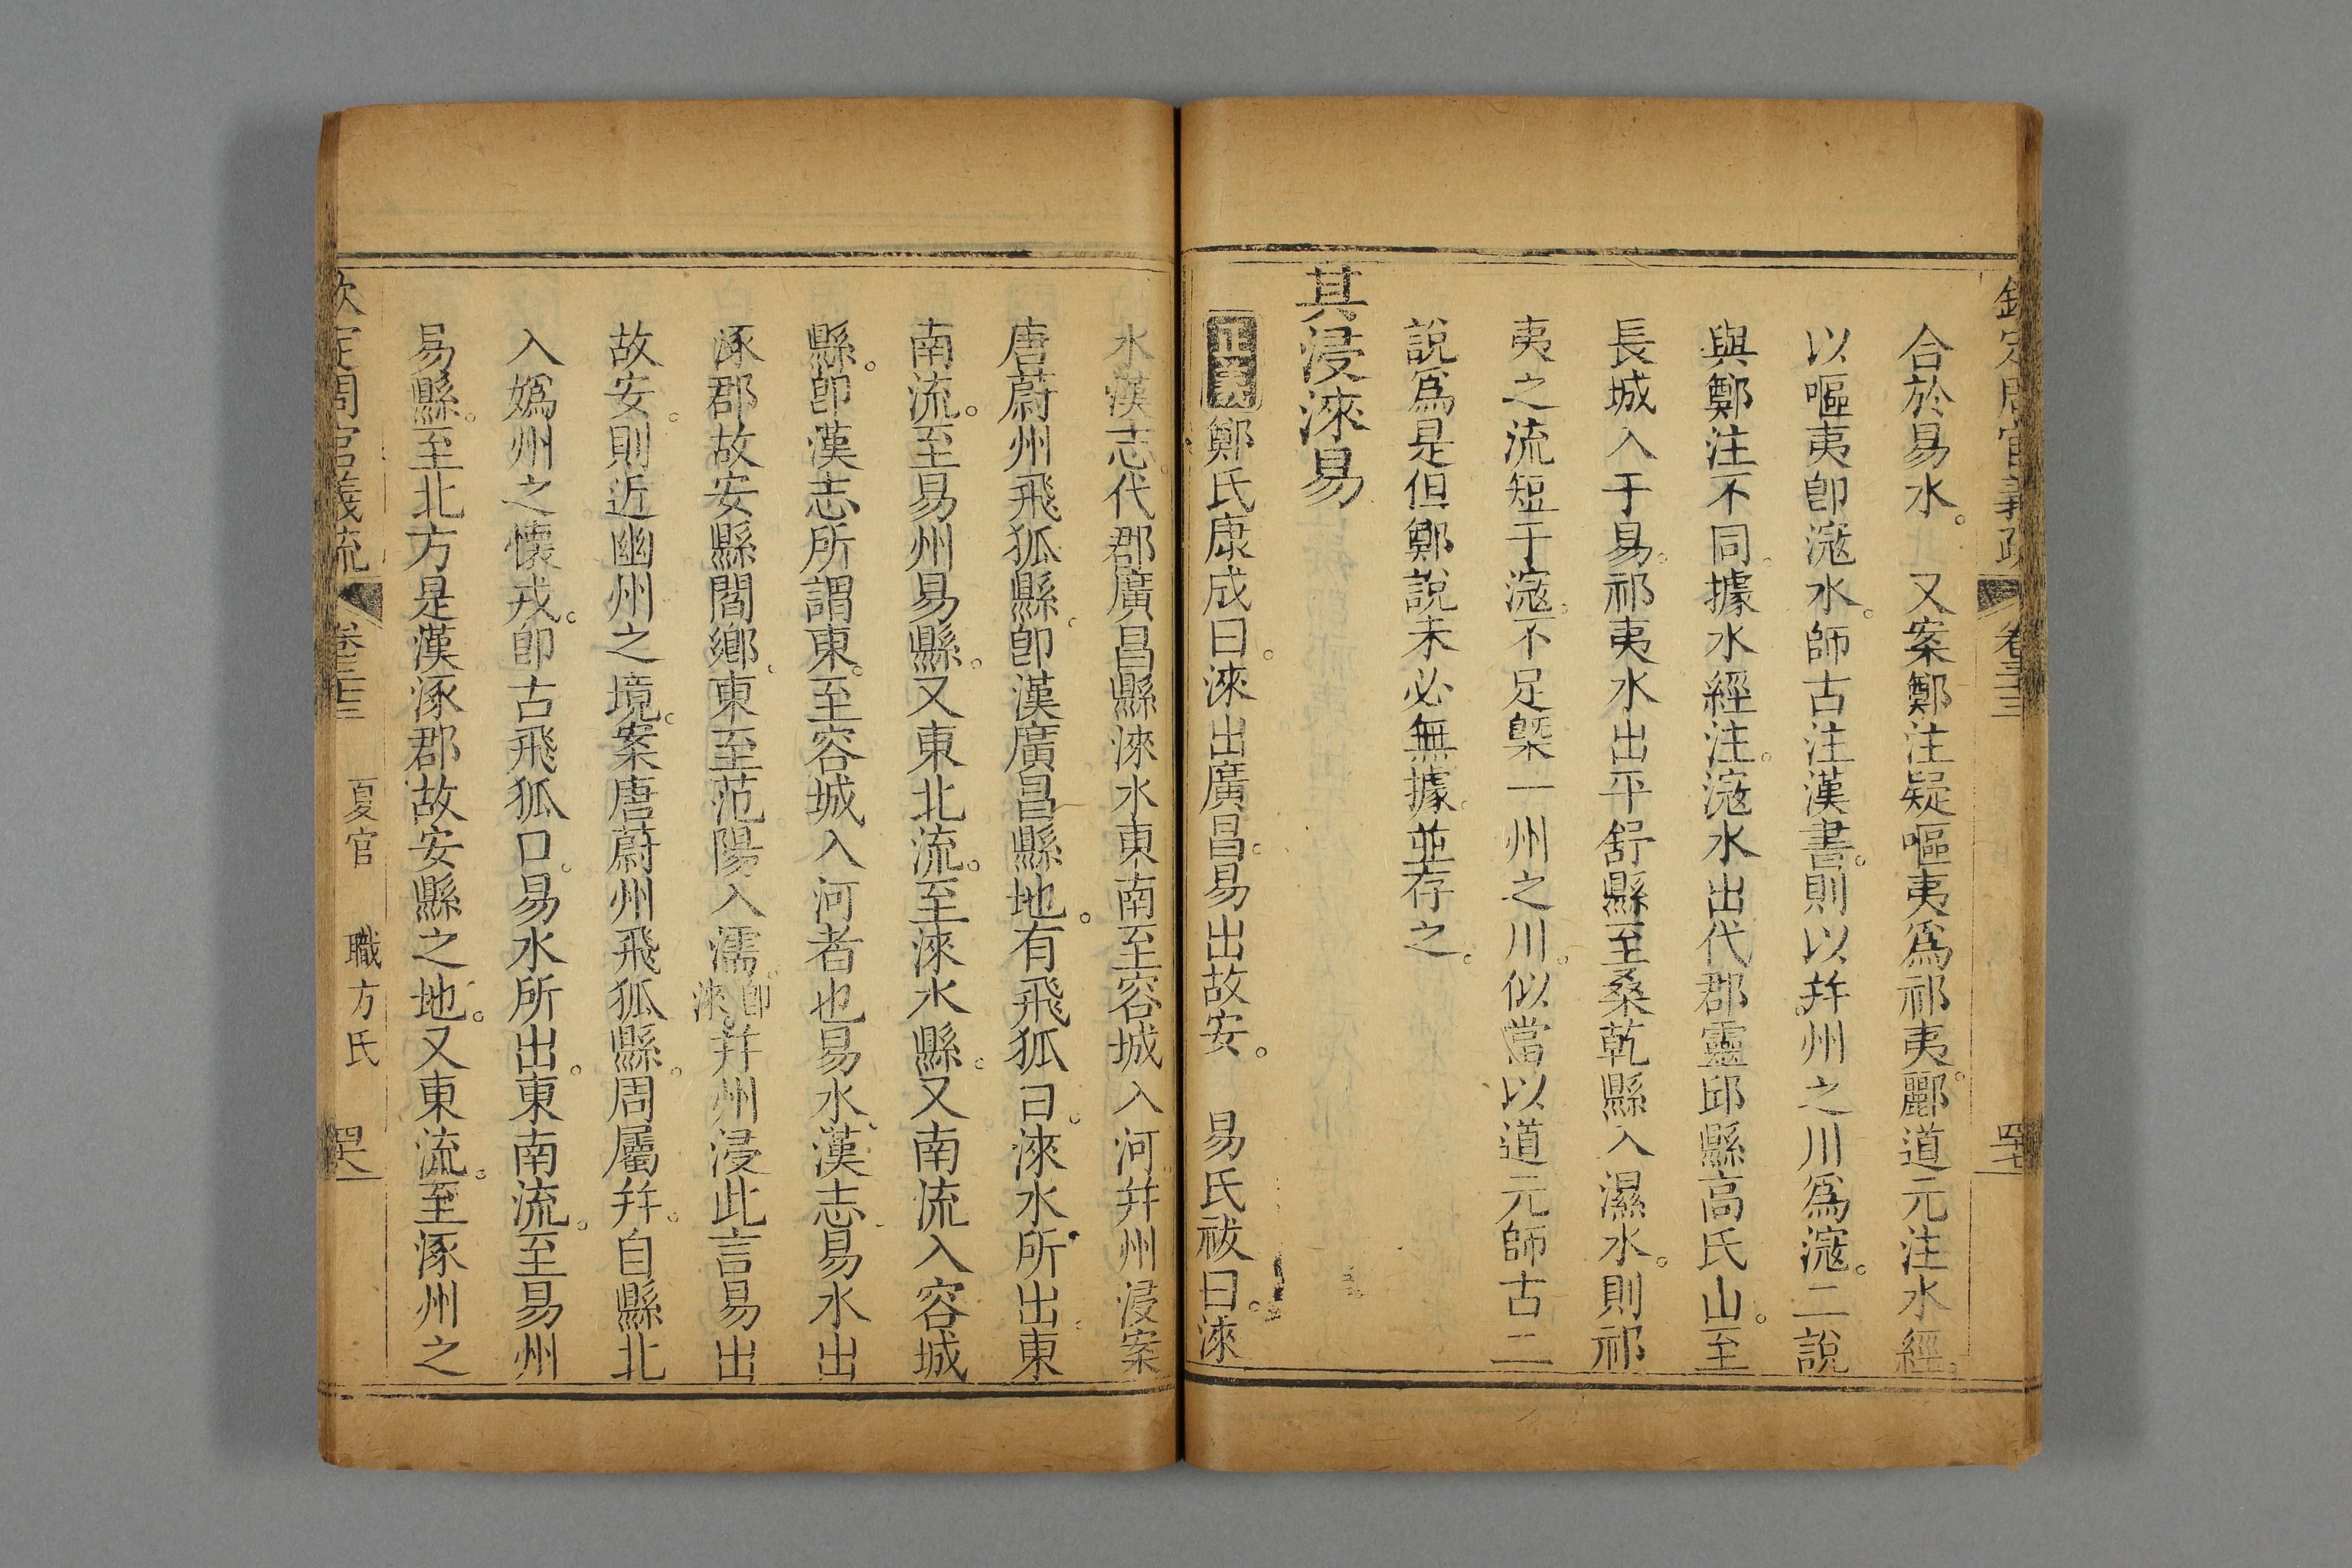 欽定周官義疏 卷三十三 四十七
合於易水。 又案鄭注疑嘔夷爲祁夷。酈道元注水經。
以嘔夷卽滱水。師古注漢書。則以幷州之川爲滱。二說
與鄭注不同。據水經注。滱水出代郡靈邱縣高氏山。至
長城入于易。祁夷水出平舒縣至桑乾縣入濕水。則祁
夷之流短于滱。不足槩一州之川。似當以道元師古二
說爲是但鄭說未必無據。並存之。
其浸淶易
正義鄭氏康成曰。淶出廣昌。易出故安。 易氏祓曰。淶
水漢志。代郡廣昌縣淶水東南至容城入河。幷州浸案
唐蔚州飛狐縣。卽漢廣昌縣地。有飛狐口。淶水所出。東
南流。至易州易縣。又東北流。至淶水縣。又南流入容城
縣。卽漢志所謂東。至容城入河者也易水。漢志易水出
涿郡故安縣閻鄉。東至范陽入濡。卽淶。幷州浸此言易出
故安。則近幽州之境。案唐蔚州飛狐縣。周屬幷。自縣北
入嬀州之懷戎。卽古飛狐口。易水所出。東南流。至易州
易縣。至北方是漢涿郡故安縣之地。又東流。至涿州之
欽定周官義疏 卷三十三 夏官 職方氏 四十八